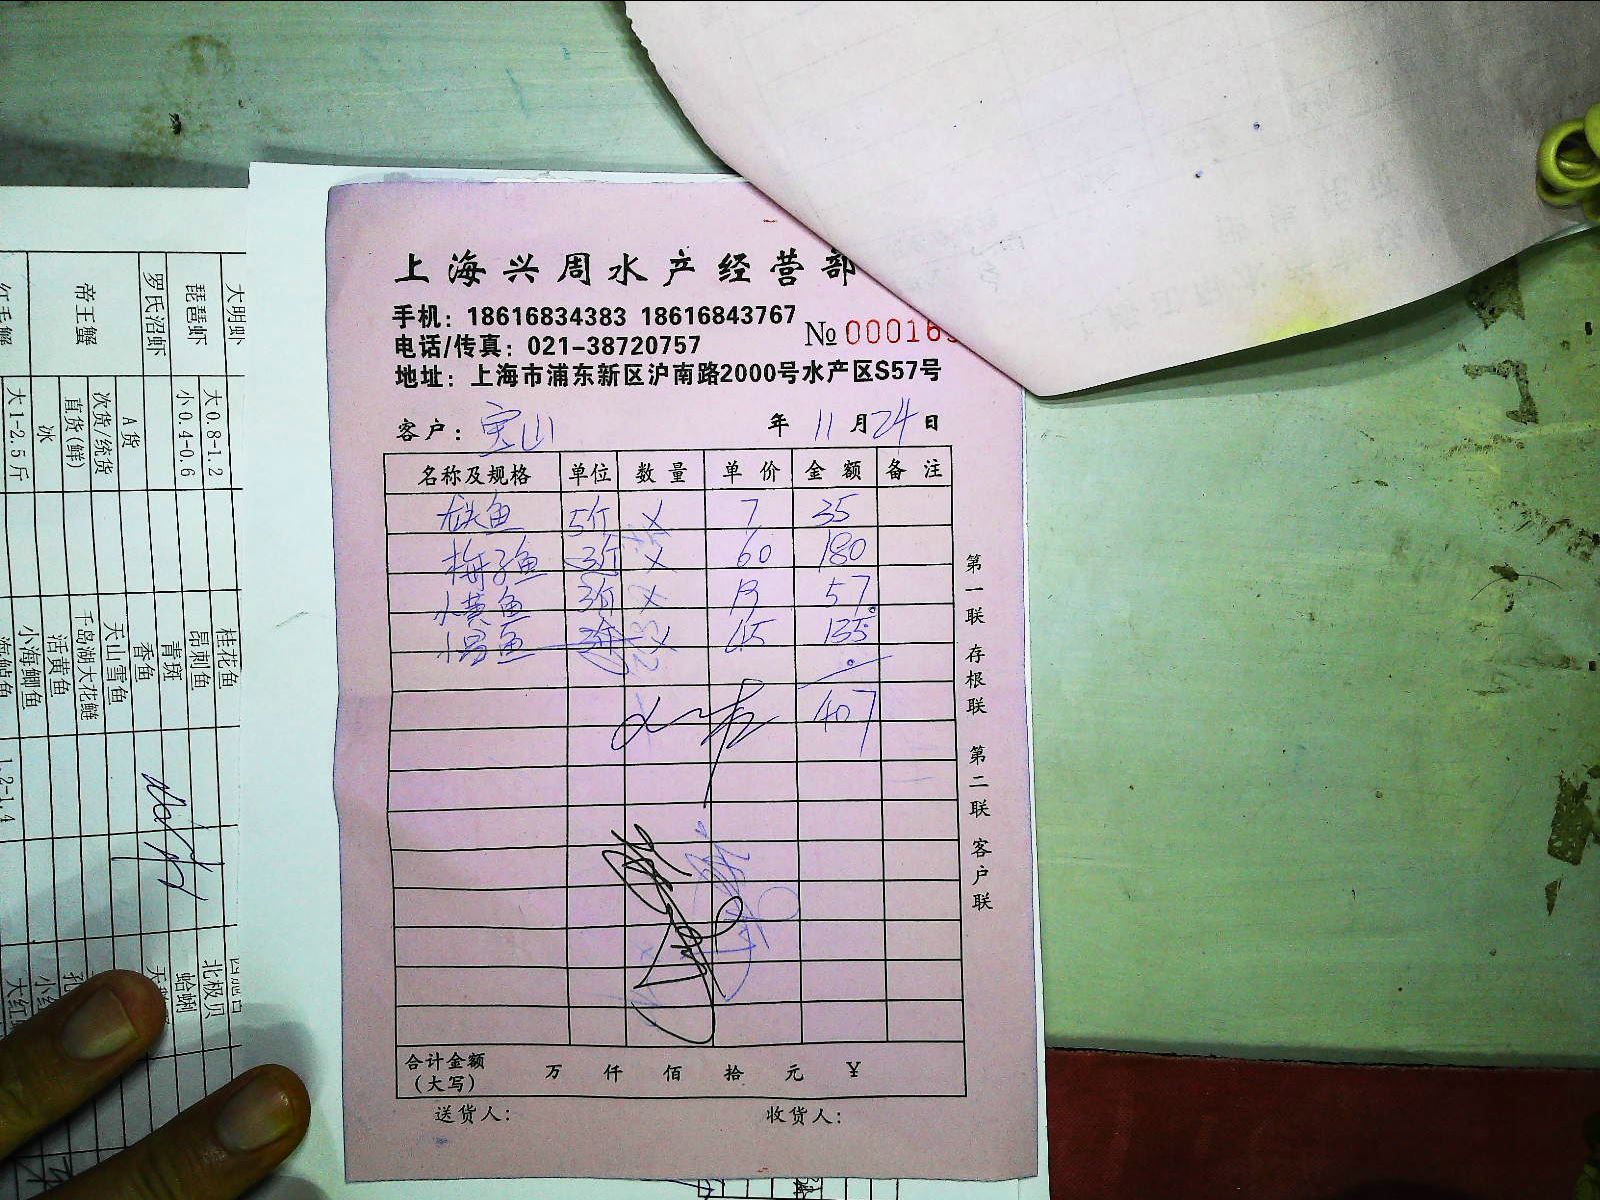 上海兴周水产经营部
手机：18616834383 18616843767
№ 00016
电话/传真：021-38720757
地址：上海市浦东新区沪南路2000号水产区S57号
客户：宝山 年 11 月 24 日
名称及规格 单位 数量 单价 金额 备注
鱼 5斤 × 7 35
梅子鱼 3斤 × 60 180
小黄鱼 3斤 × 19 57
小昌鱼 × 45 135
407
合计金额
（大写） 万 仟 佰 拾 元 ¥
送货人： 收货人：
第一联 存根联 第二联 客户联
大明虾
琵琶虾 大0.8-1.2
小0.4-0.6
罗氏沼虾
帝王蟹 A货
次货/统货
直货(鲜)
冰
红毛蟹 大1-2.5斤
桂花鱼
昂刺鱼
青斑
香鱼
天山雪鱼
千岛湖大花鲢
活黄鱼
小海鲫鱼
海鲈鱼 1.2-1.4
北极贝
蛤蜊